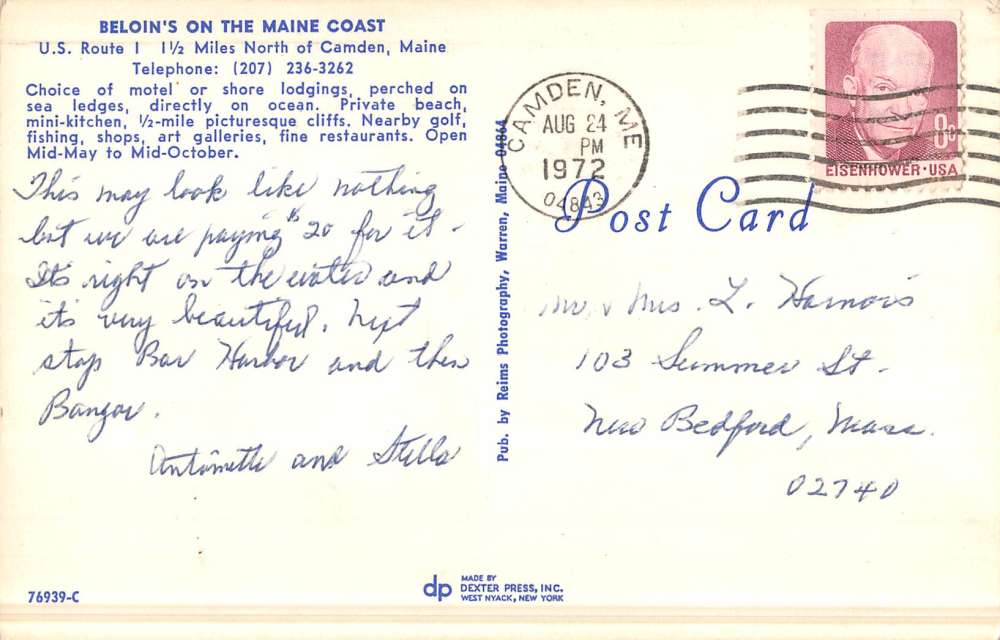 BELOIN'S ON THE MAINE COAST
U.S. Route 1 1½ Miles North of Camden, Maine
Telephone: (207) 236-3262
Choice of motel or shore lodgings, perched on
sea ledges, directly on ocean. Private beach,
mini-kitchen, ½-mile picturesque cliffs. Nearby golf,
fishing, shops, art galleries, fine restaurants. Open
Mid-May to Mid-October.
This may look like nothing
but we are paying $20 for it -
It's right on the water and
it's very beautiful. Next
stop Bar Harbor and then
Bangor.
Antoinette and Stella
76939-C
Pub. by Reims Photography, Warren, Maine 04864
dp
MADE BY
DEXTER PRESS, INC.
WEST NYACK, NEW YORK
CAMDEN, ME
AUG 24
PM
1972
04843
8c
EISENHOWER·USA
Post Card
Mr. & Mrs. L.
103 Summer St.
New Bedford, Mass.
02740